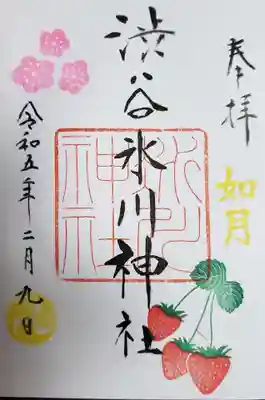 奉拝
如月
渋谷氷川神社
氷川
神社
令和五年二月九日